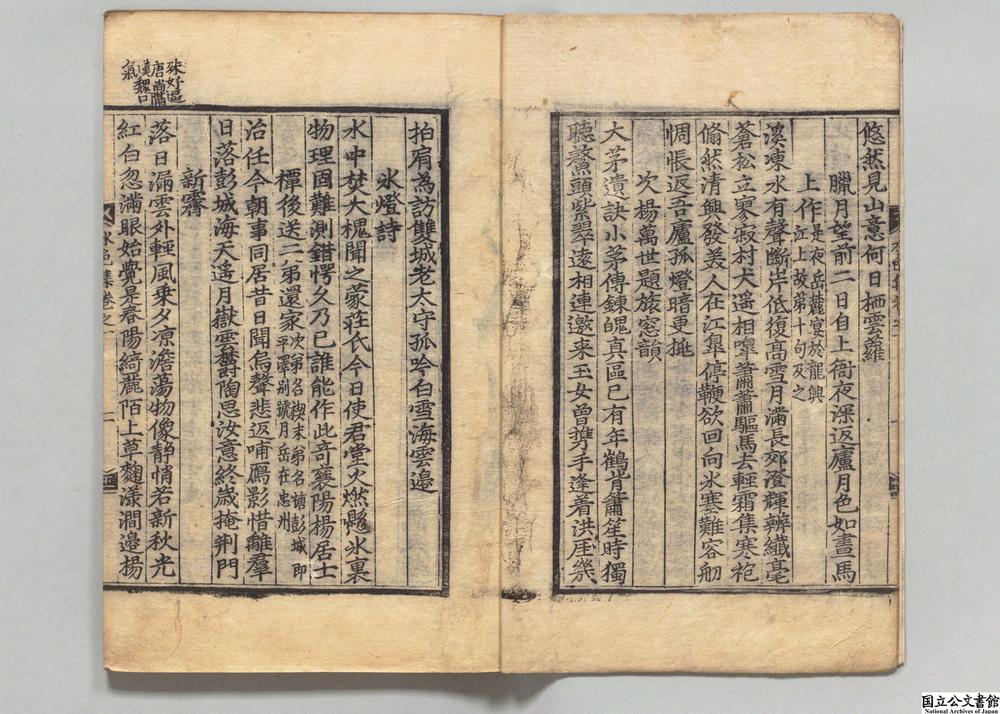 悠然見山意何日栖雲蘿
臘月望前二日自上衙夜深返廬月色如晝馬
上作是夜岳麓宴於龍興
江上故第十句及之
溪凍水有聲斷岸低復高雪月滿長郊澄輝辨纖毫
蒼松立寥寂村犬遥相嘷蕭蕭驅馬去輕霜集寒袍
翛然清興發美人在江皐停鞭欲回向氷塞難容舠
惆悵返吾廬孤燈暗更挑
次楊萬世題旅窓韻
大茅遺訣小茅傳錬魄真區已有年鶴背簫笙時獨
聽鰲頭紫翠遠相連邀来玉女曾携手逢着洪厓幾
拍肩為訪雙城老太守孤吟白雪海雲邊
氷燈詩
水中焚大槐聞之蒙莊氏今日使君堂火燃氷裏
物理固難測錯愕久乃已誰能作此竒襄陽楊居士
禫後送二弟還家次弟名禊末弟名塘彭城即
平澤別號月岳在忠州
治任今朝事同居昔日聞烏聲悲返哺鴈影惜離羣
日落彭城海天遥月嶽雲欝陶思汝意終歳掩荆門
新霽
落日漏雲外輕風乗夕凉澹蕩物像静悄若新秋光
紅白忽滿眼始覺是春陽綺麗陌上草麴漾澗邊楊
氷
集卷之
唐
漢魏口
氣
国立公文書館
National Archives of Japan